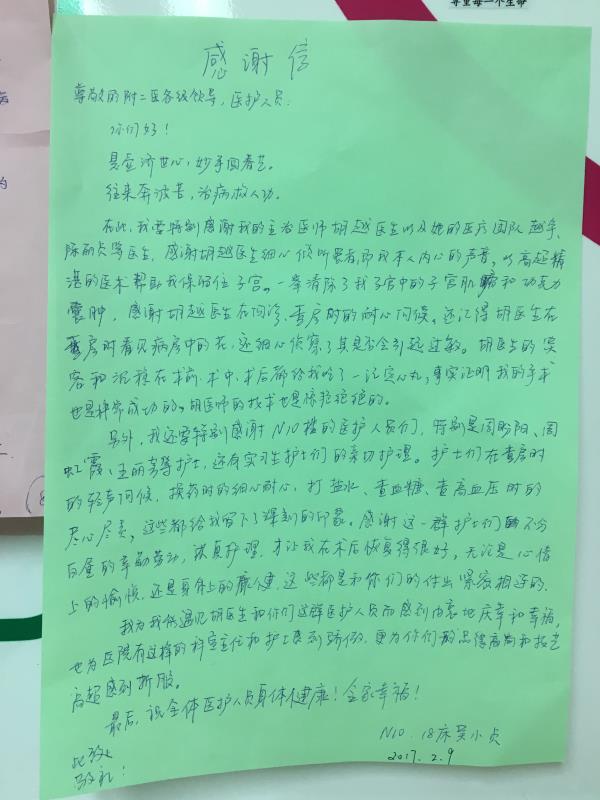 尊重每一个生命
感谢信
尊敬的附二医各级领导，医护人员：
你们好！
悬壶济世心，妙手回春艺。
往来奔波苦，治病救人功。
在此，我要特别感谢我的主治医师胡越医生以及她的医疗团队越手、
陈丽贞等医生，感谢胡越医生细心倾听患者即我本人内心的声音，以高超精
湛的医术帮助我保留住子宫。一举清除了我子宫中的子宫肌瘤和巧克力
囊肿，感谢胡越医生在问诊、查房时的耐心问候。还记得胡医生在
查房时看见病房中的花，还细心侦察了其是否会引起过敏。胡医生的笑
容和沉稳在术前、术中、术后都给我吃了一记定心丸，事实证明我的手术
也是非常成功的。胡医师的技术也是惊艳绝绝的。
另外，我还要特别感谢N10楼的医护人员们，特别是周盼阳、周
虹霞、王丽等护士，还有实习生护士们的亲切护理。护士们在查房时
的轻声问候，换药时的细心耐心，打盐水、查血糖、查高血压时的
尽心尽责，这些都给我留下了深刻的印象。感谢这一群护士们不分
白昼的辛勤劳动，认真护理，才让我在术后恢复得很好，无论是心情
上的愉悦，还是身体上的康健，这些都是和你们的付出紧密相连的。
我为我能遇见胡医生和你们这群医护人员而感到由衷地庆幸和幸福。
也为医院有这样的科室主任和护士感到骄傲，更为你们的品德高尚和技艺
高超感到折服。
最后，祝全体医护人员身体健康！全家幸福！
此致
敬礼！
N10．18床吴小贞
2017.2.9